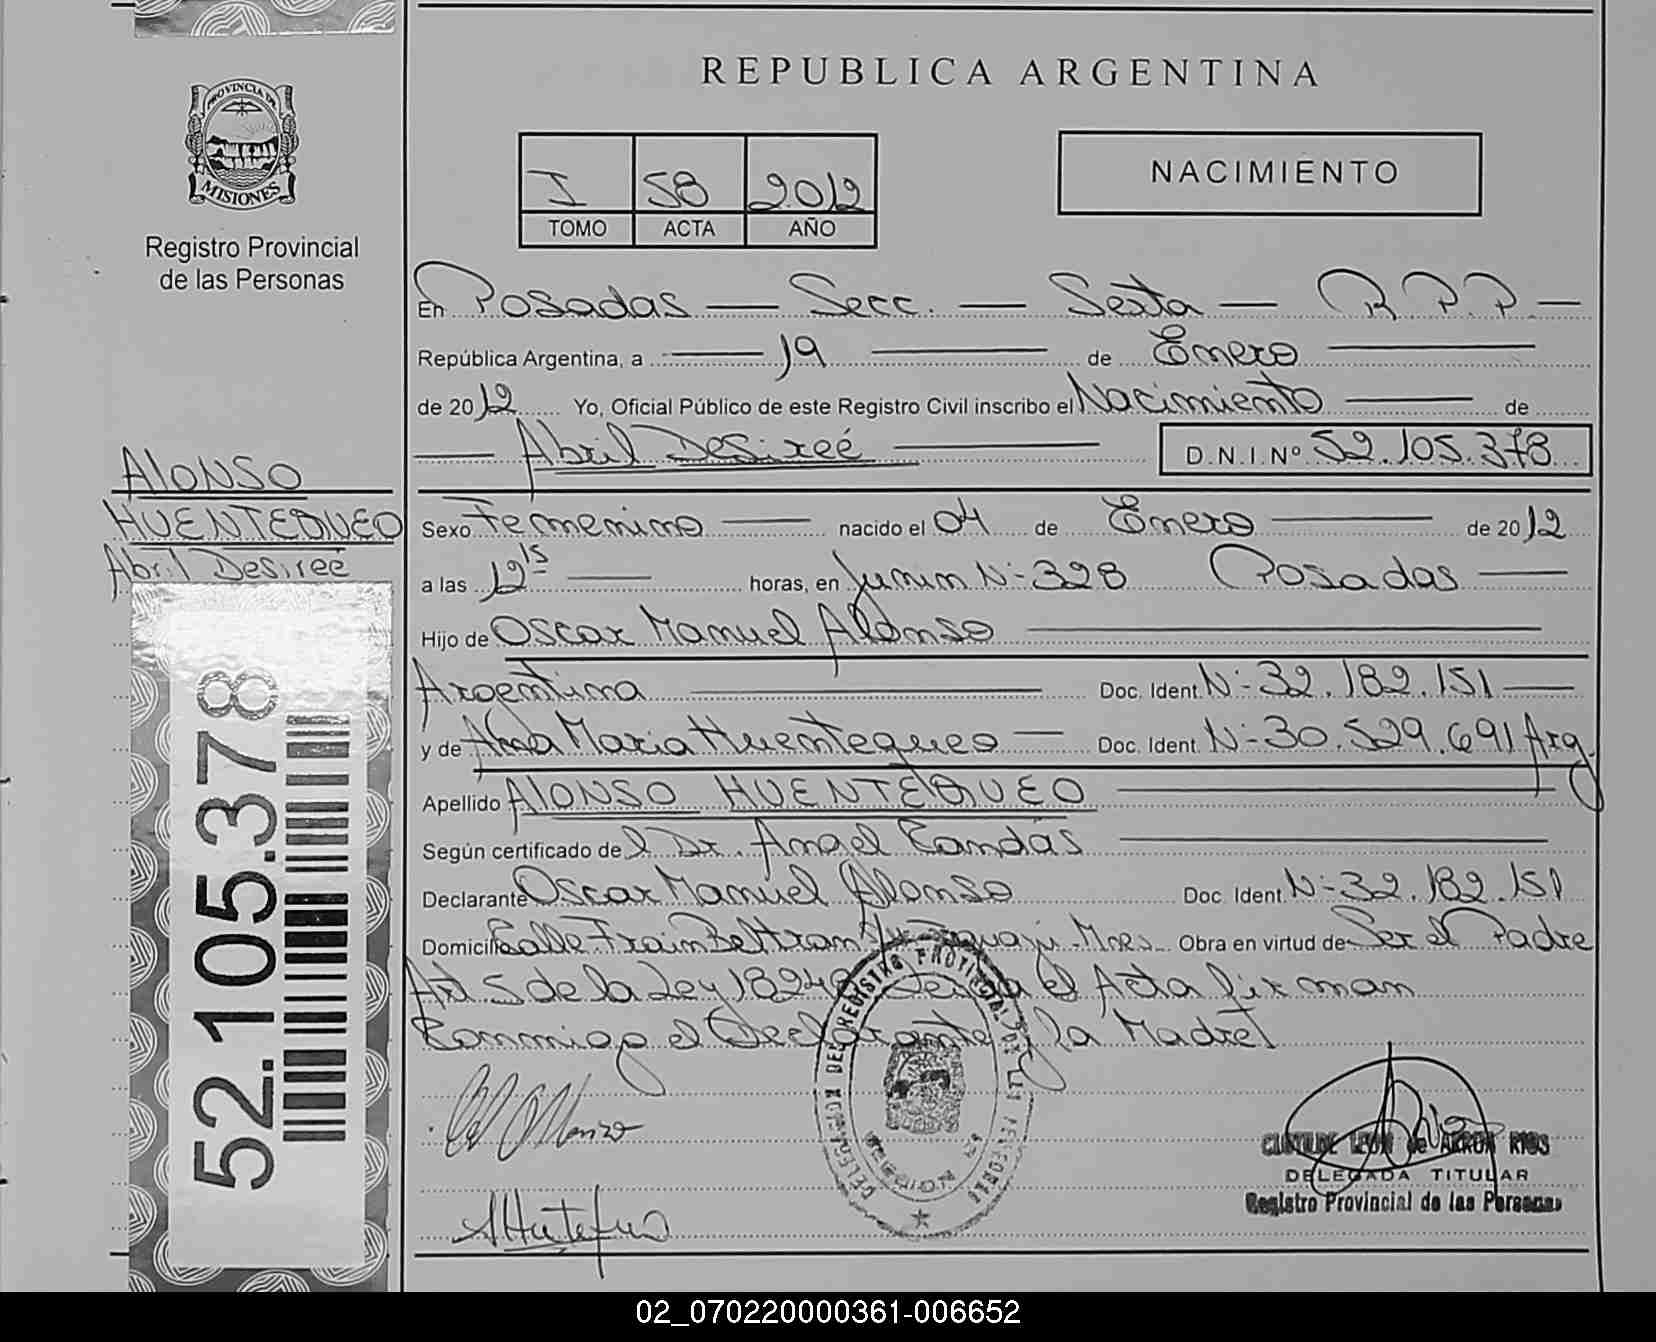 REPUBLICA ARGENTINA
PROVINCIA DE
MISIONES
Registro Provincial
de las Personas
I 58 2012
TOMO ACTA AÑO
NACIMIENTO
En Posadas — Secc. — Sexta — R.P.P. —
República Argentina, a — 19 — de Enero —
de 2012 Yo, Oficial Público de este Registro Civil inscribo el Nacimiento — de
— Abril Desireé — D.N.I.Nº 52.105.378
ALONSO
HUENTEQUEO
Abril Desireé
Sexo Femenino — nacido el 04 de Enero — de 2012
a las 12 15 — horas, en Junin Nº 328 Posadas —
Hijo de Oscar Manuel Alonso —
Argentina — Doc. Ident. Nº 32.182.151 —
y de Ana Maria Huentequeo — Doc. Ident. Nº 30.529.691 Arg.
Apellido ALONSO HUENTEQUEO —
Según certificado del Dr. Angel —
Declarante Oscar Manuel Alonso Doc. Ident. Nº 32.182.151
Domicilio Calle Beltran Mnes. Obra en virtud de Ser el Padre
Art. 5 de la Ley 18248 el Acta firman
Conmigo el Declarante y la Madre
52.105.378
DELEGACION DEL REGISTRO PROVINCIAL DE LAS PERSONAS
MISIONES
CLOTILDE LEON de ARRUA RIOS
DELEGADA TITULAR
Registro Provincial de las Personas
02_070220000361-006652